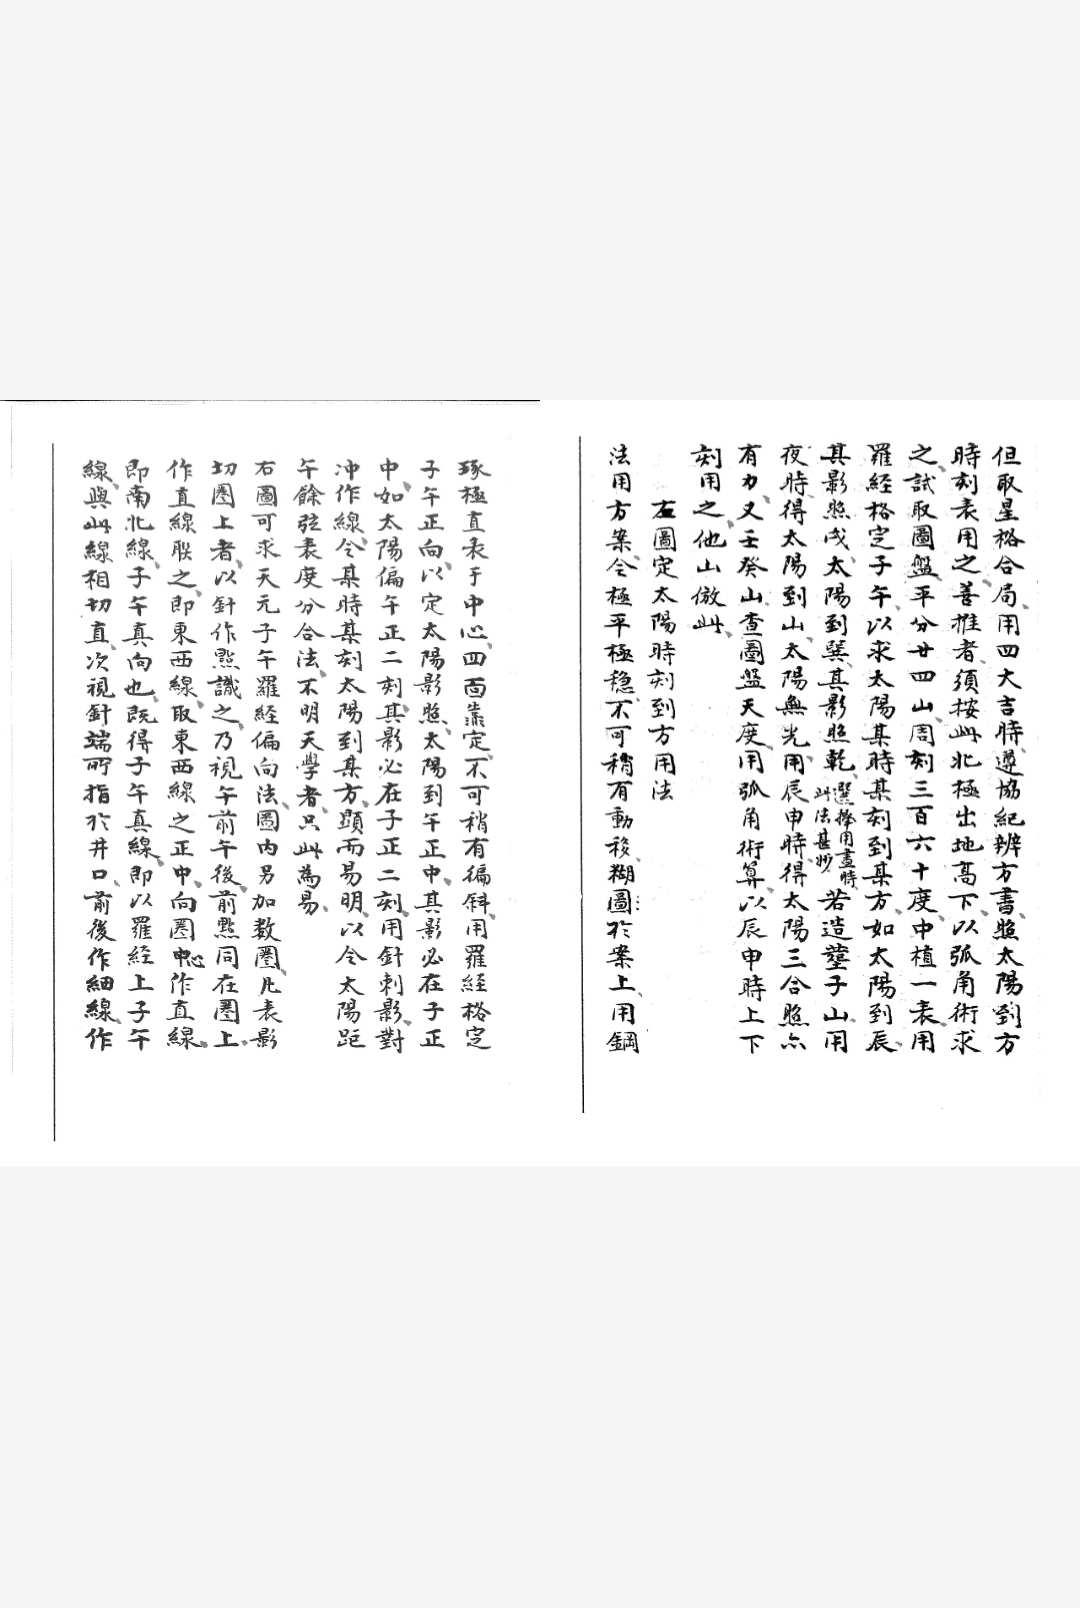 但取星格合局、用四大吉時、遵協紀辨方書、照太陽到方
時刻表用之、善推者、須按此北極出地高下、以弧角術求
之、試取圖盤、平分廿四山、周刻三百六十度、中植一表、用
羅經格定子午、以求太陽某時某刻到某方、如太陽到辰、
其影照戌、太陽到巽、其影照乾、選擇用晝時、此法甚妙、若造葬子山、用
夜時、得太陽到山、太陽無光、用辰申時、得太陽三合照亦
有力、又壬癸山、查圖盤天度、用弧角術算、以辰申時上下
刻用之、他山倣此、
右圖定太陽時刻到方用法
法用方案、令極平極穩、不可稍有動移、糊圖於案上、用鋼
琢極直表于中心、四面準定、不可稍有偏斜、用羅經格定
子午正向、以定太陽影照、太陽到午正中、其影必在子正
中、如太陽偏午正二刻、其影必在子正二刻、用針刺影、對
冲作線、令某時某刻太陽到某方、顯而易明、以令太陽距
午餘弦表度分合法、不明天學者、只此為易、
右圖可求天元子午羅經偏向法、圖內另加數圈、凡表影
切圈上者、以針作點識之、乃視午前午後、前點同在圈上、
作直線聯之、即東西線、取東西線之正中、向圈中心作直線、
即南北線、子午真向也、既得子午真線、即以羅經上子午
線、與此線相切直、次視針端所指於井口、前後作細線、作